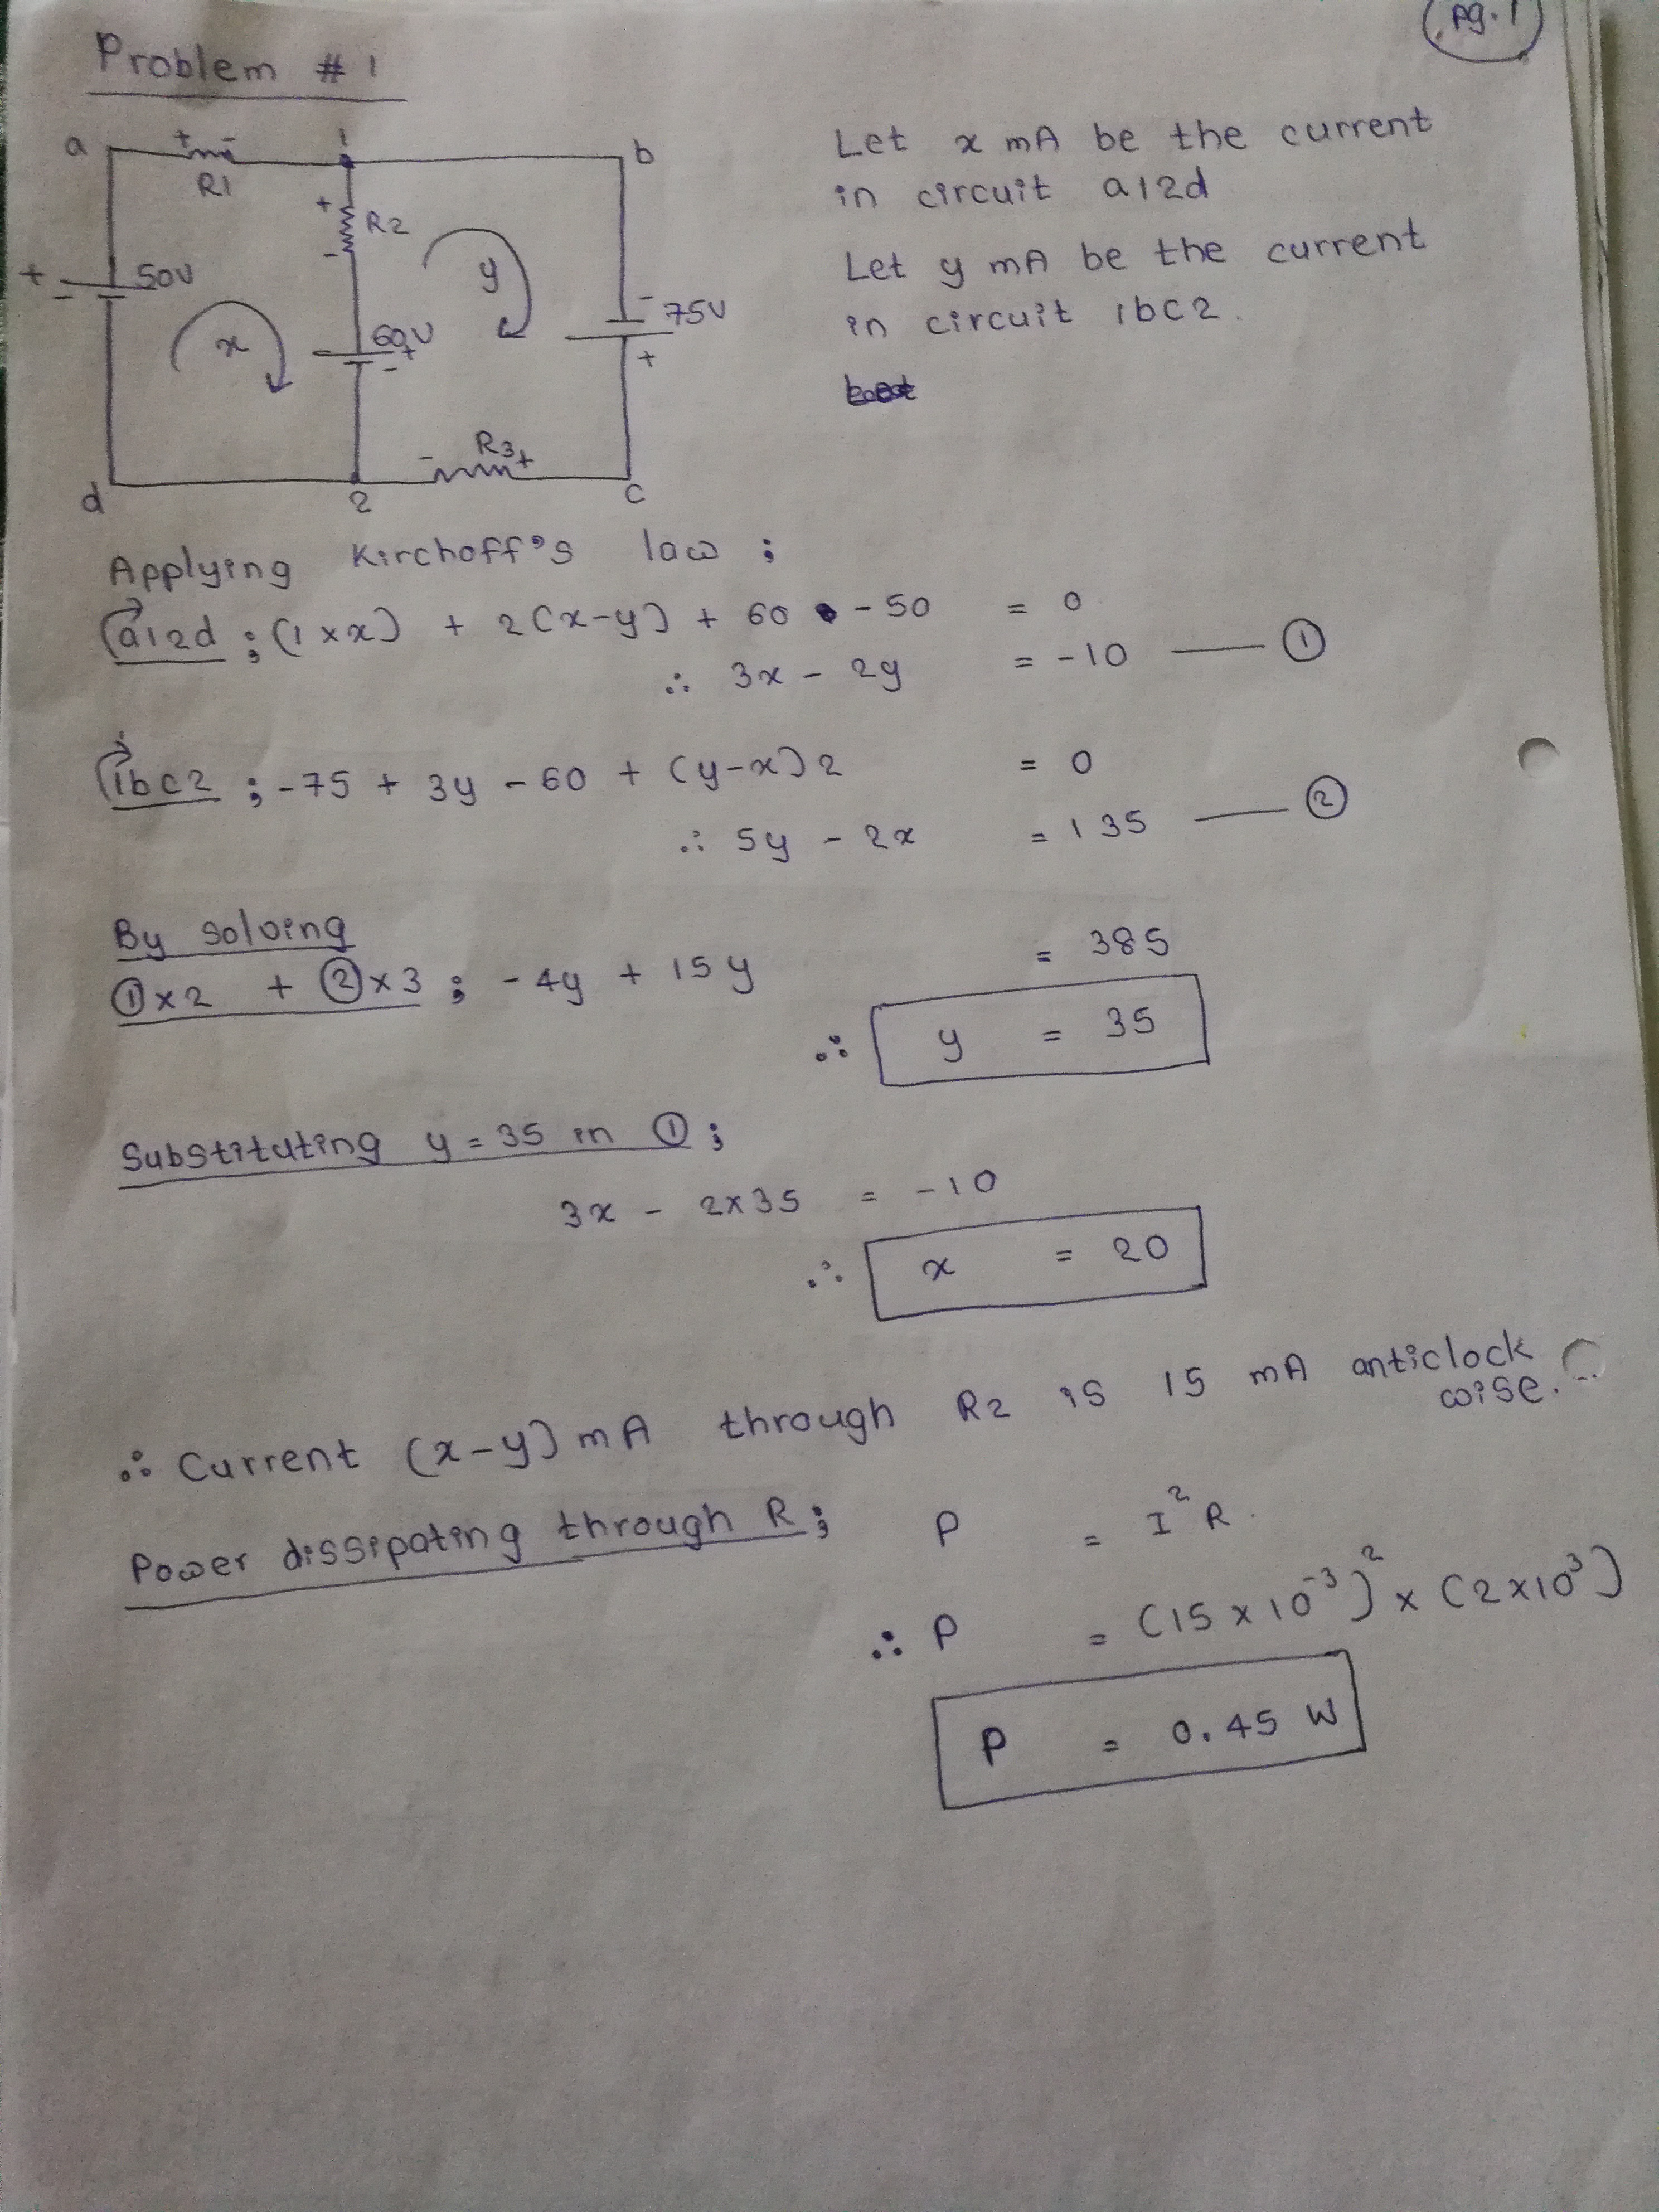 Pg.1
Problem # 1
a + - 1 b
R1
+ R2 -
+ - 50V
x
y
60V + -
- 75V +
- R3 +
d 2 c
Let x mA be the current
in circuit a12d
Let y mA be the current
in circuit 1bc2.
Applying Kirchoff's law ;
a12d ; (1 × x) + 2(x-y) + 60 - 50 = 0
∴ 3x - 2y = -10 —— ①
1bc2 ; -75 + 3y - 60 + (y-x)2 = 0
∴ 5y - 2x = 135 —— ②
By solving
①×2 + ②×3 ; -4y + 15y = 385
∴ y = 35
Substituting y = 35 in ① ;
3x - 2×35 = -10
∴ x = 20
∴ Current (x-y) mA through R2 is 15 mA anticlock
wise.
Power dissipating through R ; P = I² R.
∴ P = (15 × 10⁻³)² × (2×10³)
P = 0.45 W